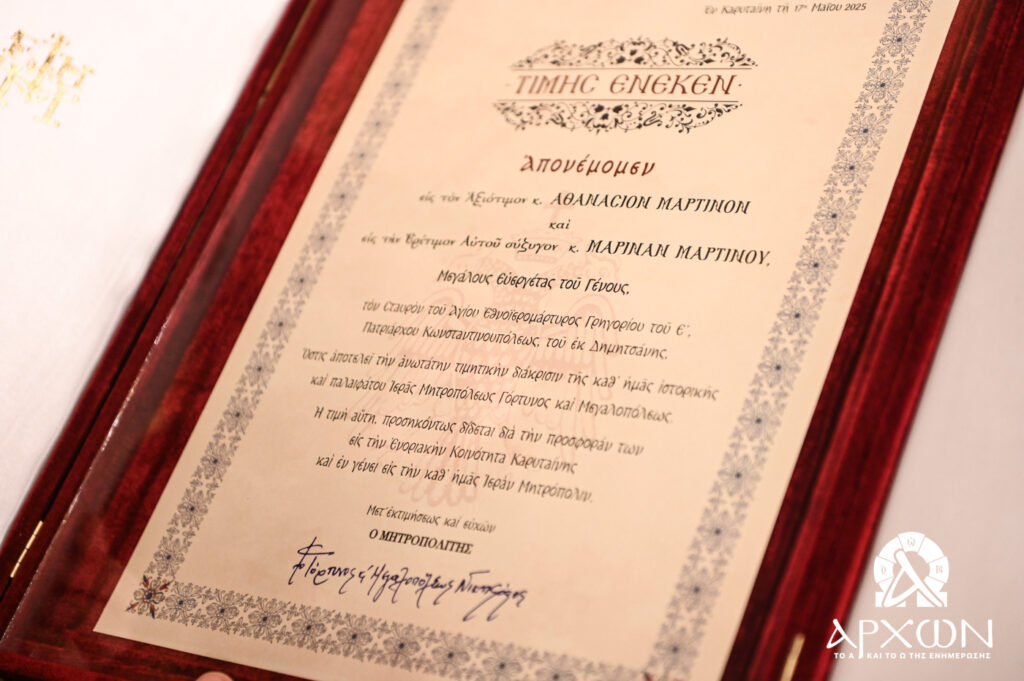 Ἐν Καρυταίνῃ τῇ 17ῃ Μαΐου 2025
ΤΙΜΗC ΕΝΕΚΕΝ
Ἀπονέμομεν
εἰς τὸν Ἀξιότιμον κ. ΑΘΑΝΑCΙΟΝ ΜΑΡΤΙΝΟΝ
καὶ
εἰς τὴν Ἐρίτιμον Αὐτοῦ σύζυγον κ. ΜΑΡΙΝΑΝ ΜΑΡΤΙΝΟΥ,
Μεγάλους Εὐεργέτας τοῦ Γένους,
τὸν Σταυρὸν τοῦ Ἁγίου Ἐθνοϊερομάρτυρος Γρηγορίου τοῦ Ε΄,
Πατριάρχου Κωνσταντινουπόλεως, τοῦ ἐκ Δημητσάνης,
Ὅστις ἀποτελεῖ τὴν ἀνωτάτην τιμητικὴν διάκρισιν τῆς καθ᾽ ἡμᾶς ἱστορικῆς
καὶ παλαιφάτου Ἱερᾶς Μητροπόλεως Γόρτυνος καὶ Μεγαλοπόλεως.
Ἡ τιμὴ αὕτη, προσηκόντως δίδεται διὰ τὴν προσφοράν των
εἰς τὴν Ἐνοριακὴν Κοινότητα Καρυταίνης
καὶ ἐν γένει εἰς τὴν καθ᾽ ἡμᾶς Ἱερὰν Μητρόπολιν.
Μετ᾽ ἐκτιμήσεως καὶ εὐχῶν
Ο ΜΗΤΡΟΠΟΛΙΤΗΣ
Γόρτυνος & Μεγαλοπόλεως Νικηφόρος
ΑΡΧΩΝ
ΤΟ Α ΚΑΙ ΤΟ Ω ΤΗΣ ΕΝΗΜΕΡΩΣΗΣ